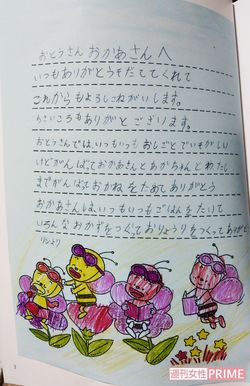 おとうさん おかあさんへ
いつもありがとうそだててくれて
これからもよろしくねがいします。
ちさいころもありがとございます。
おとうさんでは、いつもいつもおしごとでいそがしい
けどがんばておかあさんとあかちゃんとわたし
までがんばておかねをためてありがとう
おかあさんはいつもいつもごはんをたいて
いろんなおかずをつくておりょうりをつくってありがと
リンより
3
週刊女性PRIME